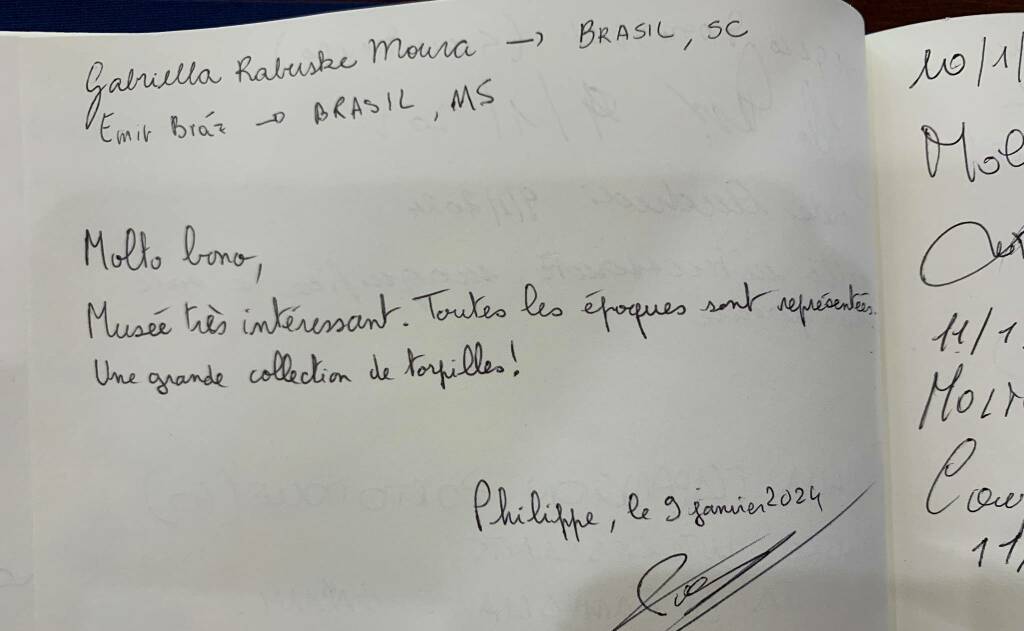 Gabriella Rabuske Moura → BRASIL, SC
Emir Bráz → BRASIL, MS
Molto bono,
Musée très intéressant. Toutes les époques sont représentées.
Une grande collection de torpilles!
Philippe, le 9 janvier 2024
10/1/
11/1
11/